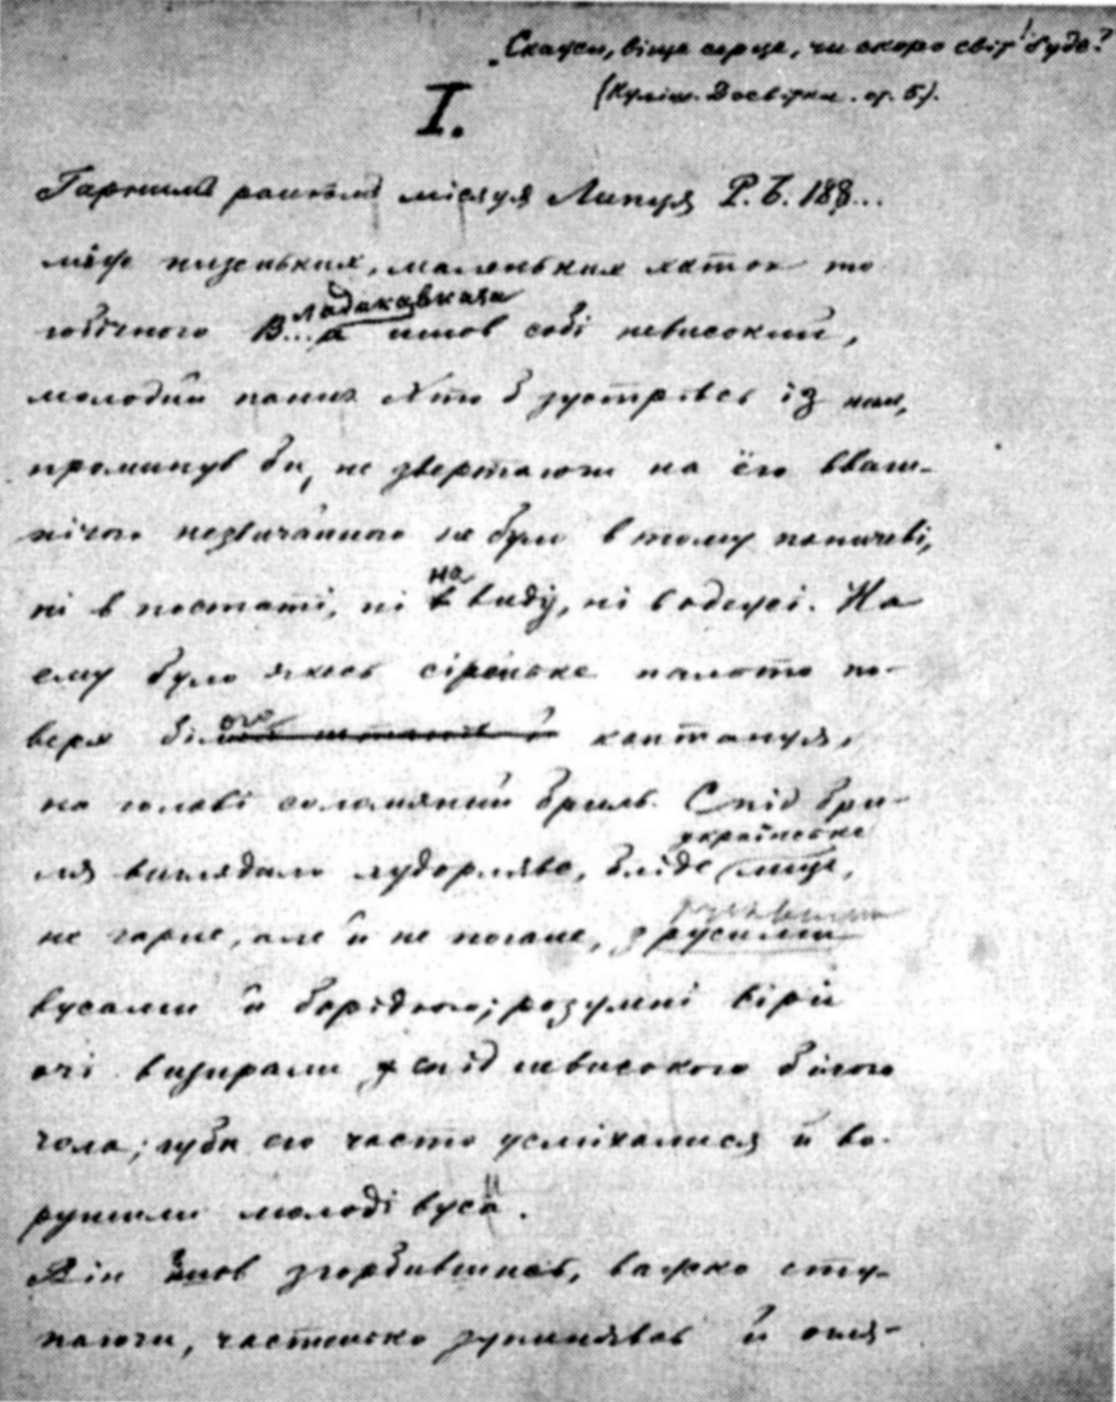 „Скажи, віще серце, чи скоро світ буде?!
(Куліш. Досвітки. ст. 5).
I.
Гарним ранком місяця Липця Р. Б. 188...
між низеньких, маленьких хаток то
ладикавказа
гобічного В...а ишов собі невисокий,
молодий панич. Хто б зустрівсь із ним,
проминув би, не звертаючи на ёго вваги
нічого незвичайного не було в тому паничеві,
на
ні в постаті, ні в виду, ні в одежі. На
ему було якесь сіреньке пальто по-
ого
верх біл каптанця,
на голові солом'яний бриль. Спід бри-
українське
ля виглядало худорляве, бліде лице,
не гарне, але й не погане, з русими
вусами й борідкою; розумні сірі
очі визирали спід невисокого білого
чола; губи его часто усміхалися й во-
рушили молоді вуса.
Він ишов згорбившись, важко сту-
паючи, частенько зупинявсь й огля-